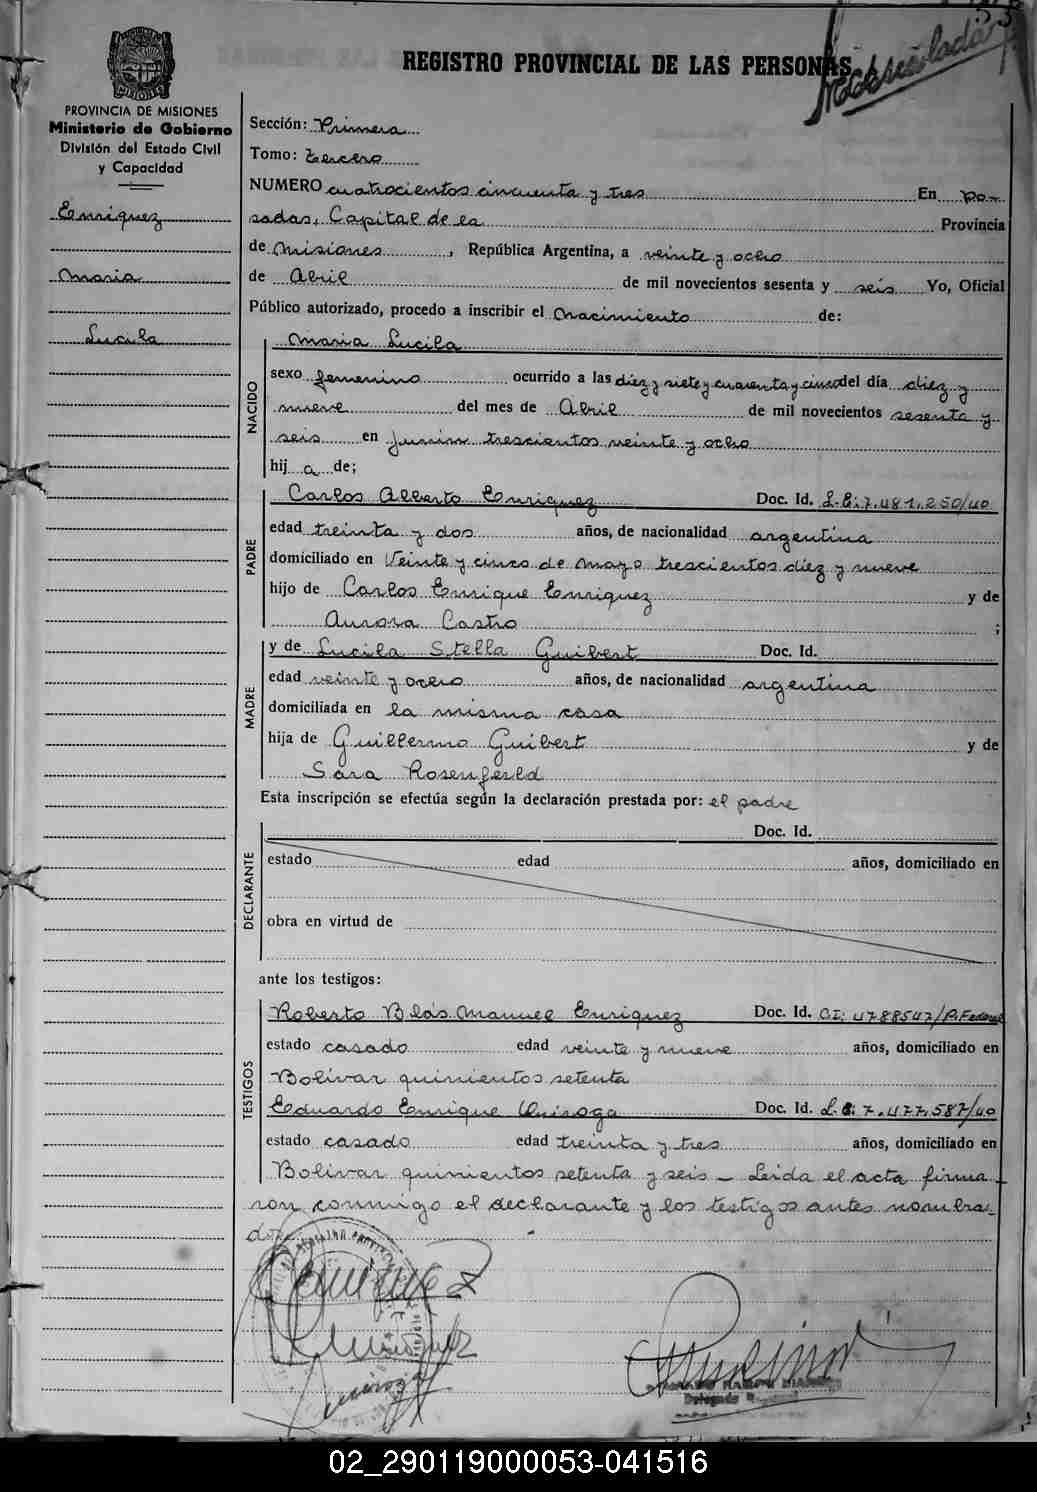 REGISTRO PROVINCIAL DE LAS PERSONAS
PROVINCIA DE MISIONES
Ministerio de Gobierno
División del Estado Civil
y Capacidad
Enriquez
Maria
Lucila
Sección: Primera
Tomo: tercero
NUMERO cuatrocientos cincuenta y tres En Po-
sadas, Capital de la Provincia
de Misiones, República Argentina, a veinte y ocho
de Abril de mil novecientos sesenta y seis Yo, Oficial
Público autorizado, procedo a inscribir el nacimiento de:
NACIDO
Maria Lucila
sexo femenino ocurrido a las diez y siete y cuarenta y cinco del día diez y
nueve del mes de Abril de mil novecientos sesenta y
seis en Junin trescientos veinte y ocho
hij a de;
PADRE
Carlos Alberto Enriquez Doc. Id. L.E: 7.481.250/40
edad treinta y dos años, de nacionalidad argentina
domiciliado en Veinte y cinco de mayo trescientos diez y nueve
hijo de Carlos Enrique Enriquez y de
Aurora Castro ;
MADRE
y de Lucila Stella Guibert Doc. Id.
edad veinte y ocho años, de nacionalidad argentina
domiciliada en la misma casa
hija de Guillermo Guibert y de
Sara Rosenferld
Esta inscripción se efectúa según la declaración prestada por: el padre
DECLARANTE
Doc. Id.
estado edad años, domiciliado en
obra en virtud de
ante los testigos:
TESTIGOS
Roberto Blás Manuel Enriquez Doc. Id. CI: 4788547/P.Federal
estado casado edad veinte y nueve años, domiciliado en
Bolivar quinientos setenta
Eduardo Enrique Quiroga Doc. Id. L.E: 7.477.587/40
estado casado edad treinta y tres años, domiciliado en
Bolivar quinientos setenta y seis - Leida el acta firma-
ron conmigo el declarante y los testigos antes nombra-
dos
Enriquez
Delegado
02_290119000053-041516